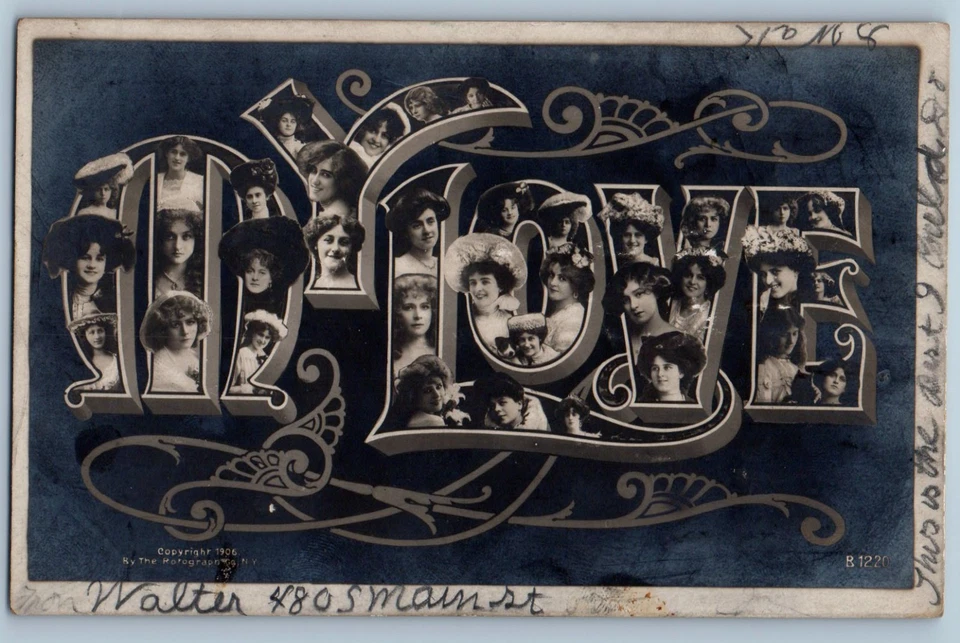 MY LOVE
Copyright 1906.
By The Rotograph Co. N.Y.
B 1220
Walter 480 S main st
This is the dust I could do